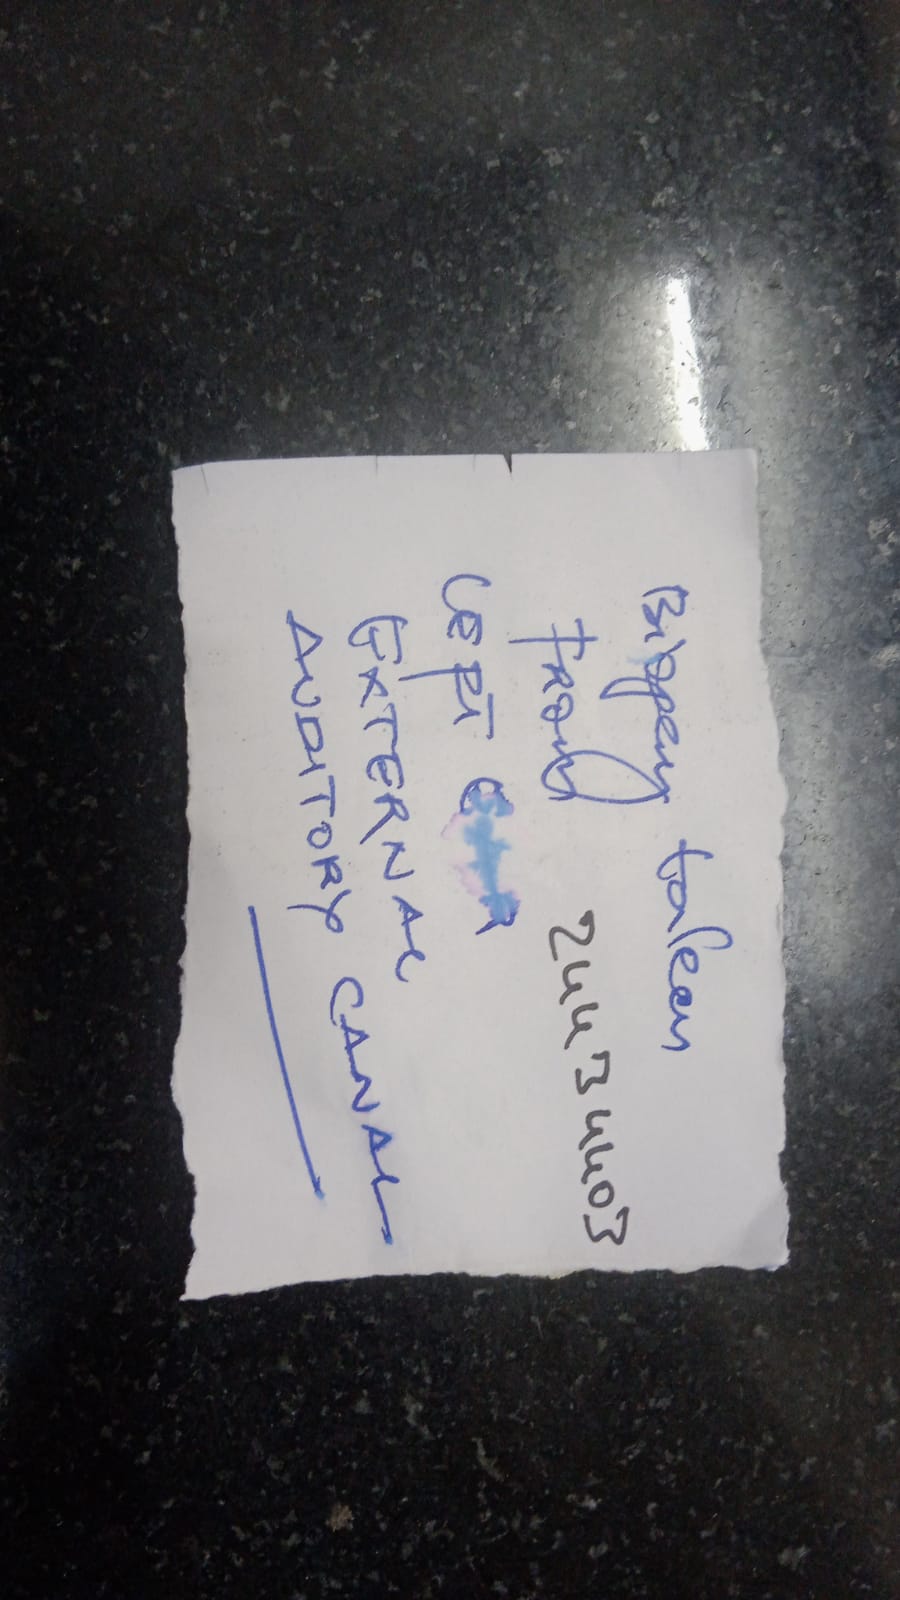 Biopsy taken
from 24434403
LEFT EAR
EXTERNAL
AUDITORY CANAL